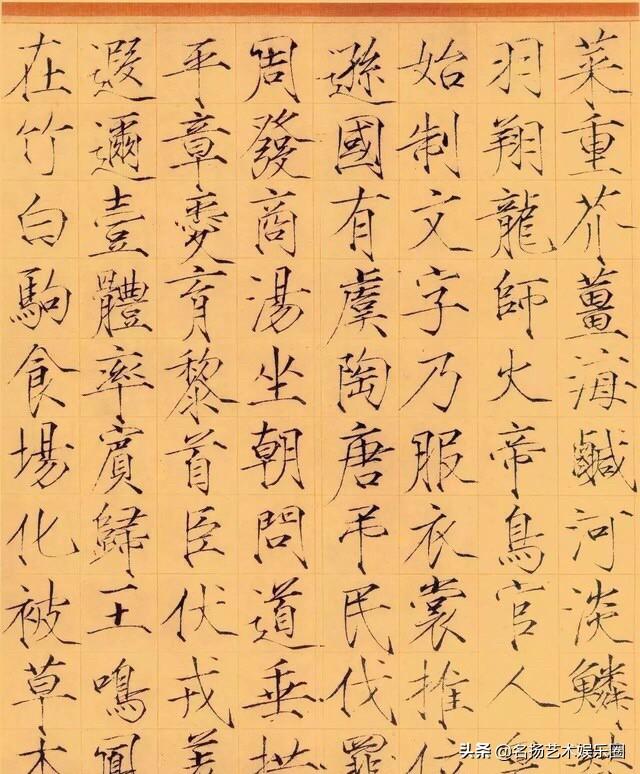 菜重芥薑海鹹河淡鱗
羽翔龍師火帝鳥官人
始制文字乃服衣裳推位
遜國有虞陶唐弔民伐罪
周發商湯坐朝問道垂拱
平章愛育黎首臣伏戎羌
遐邇壹體率賓歸王鳴鳳
在竹白駒食場化被草木
头条 @名扬艺术娱乐圈